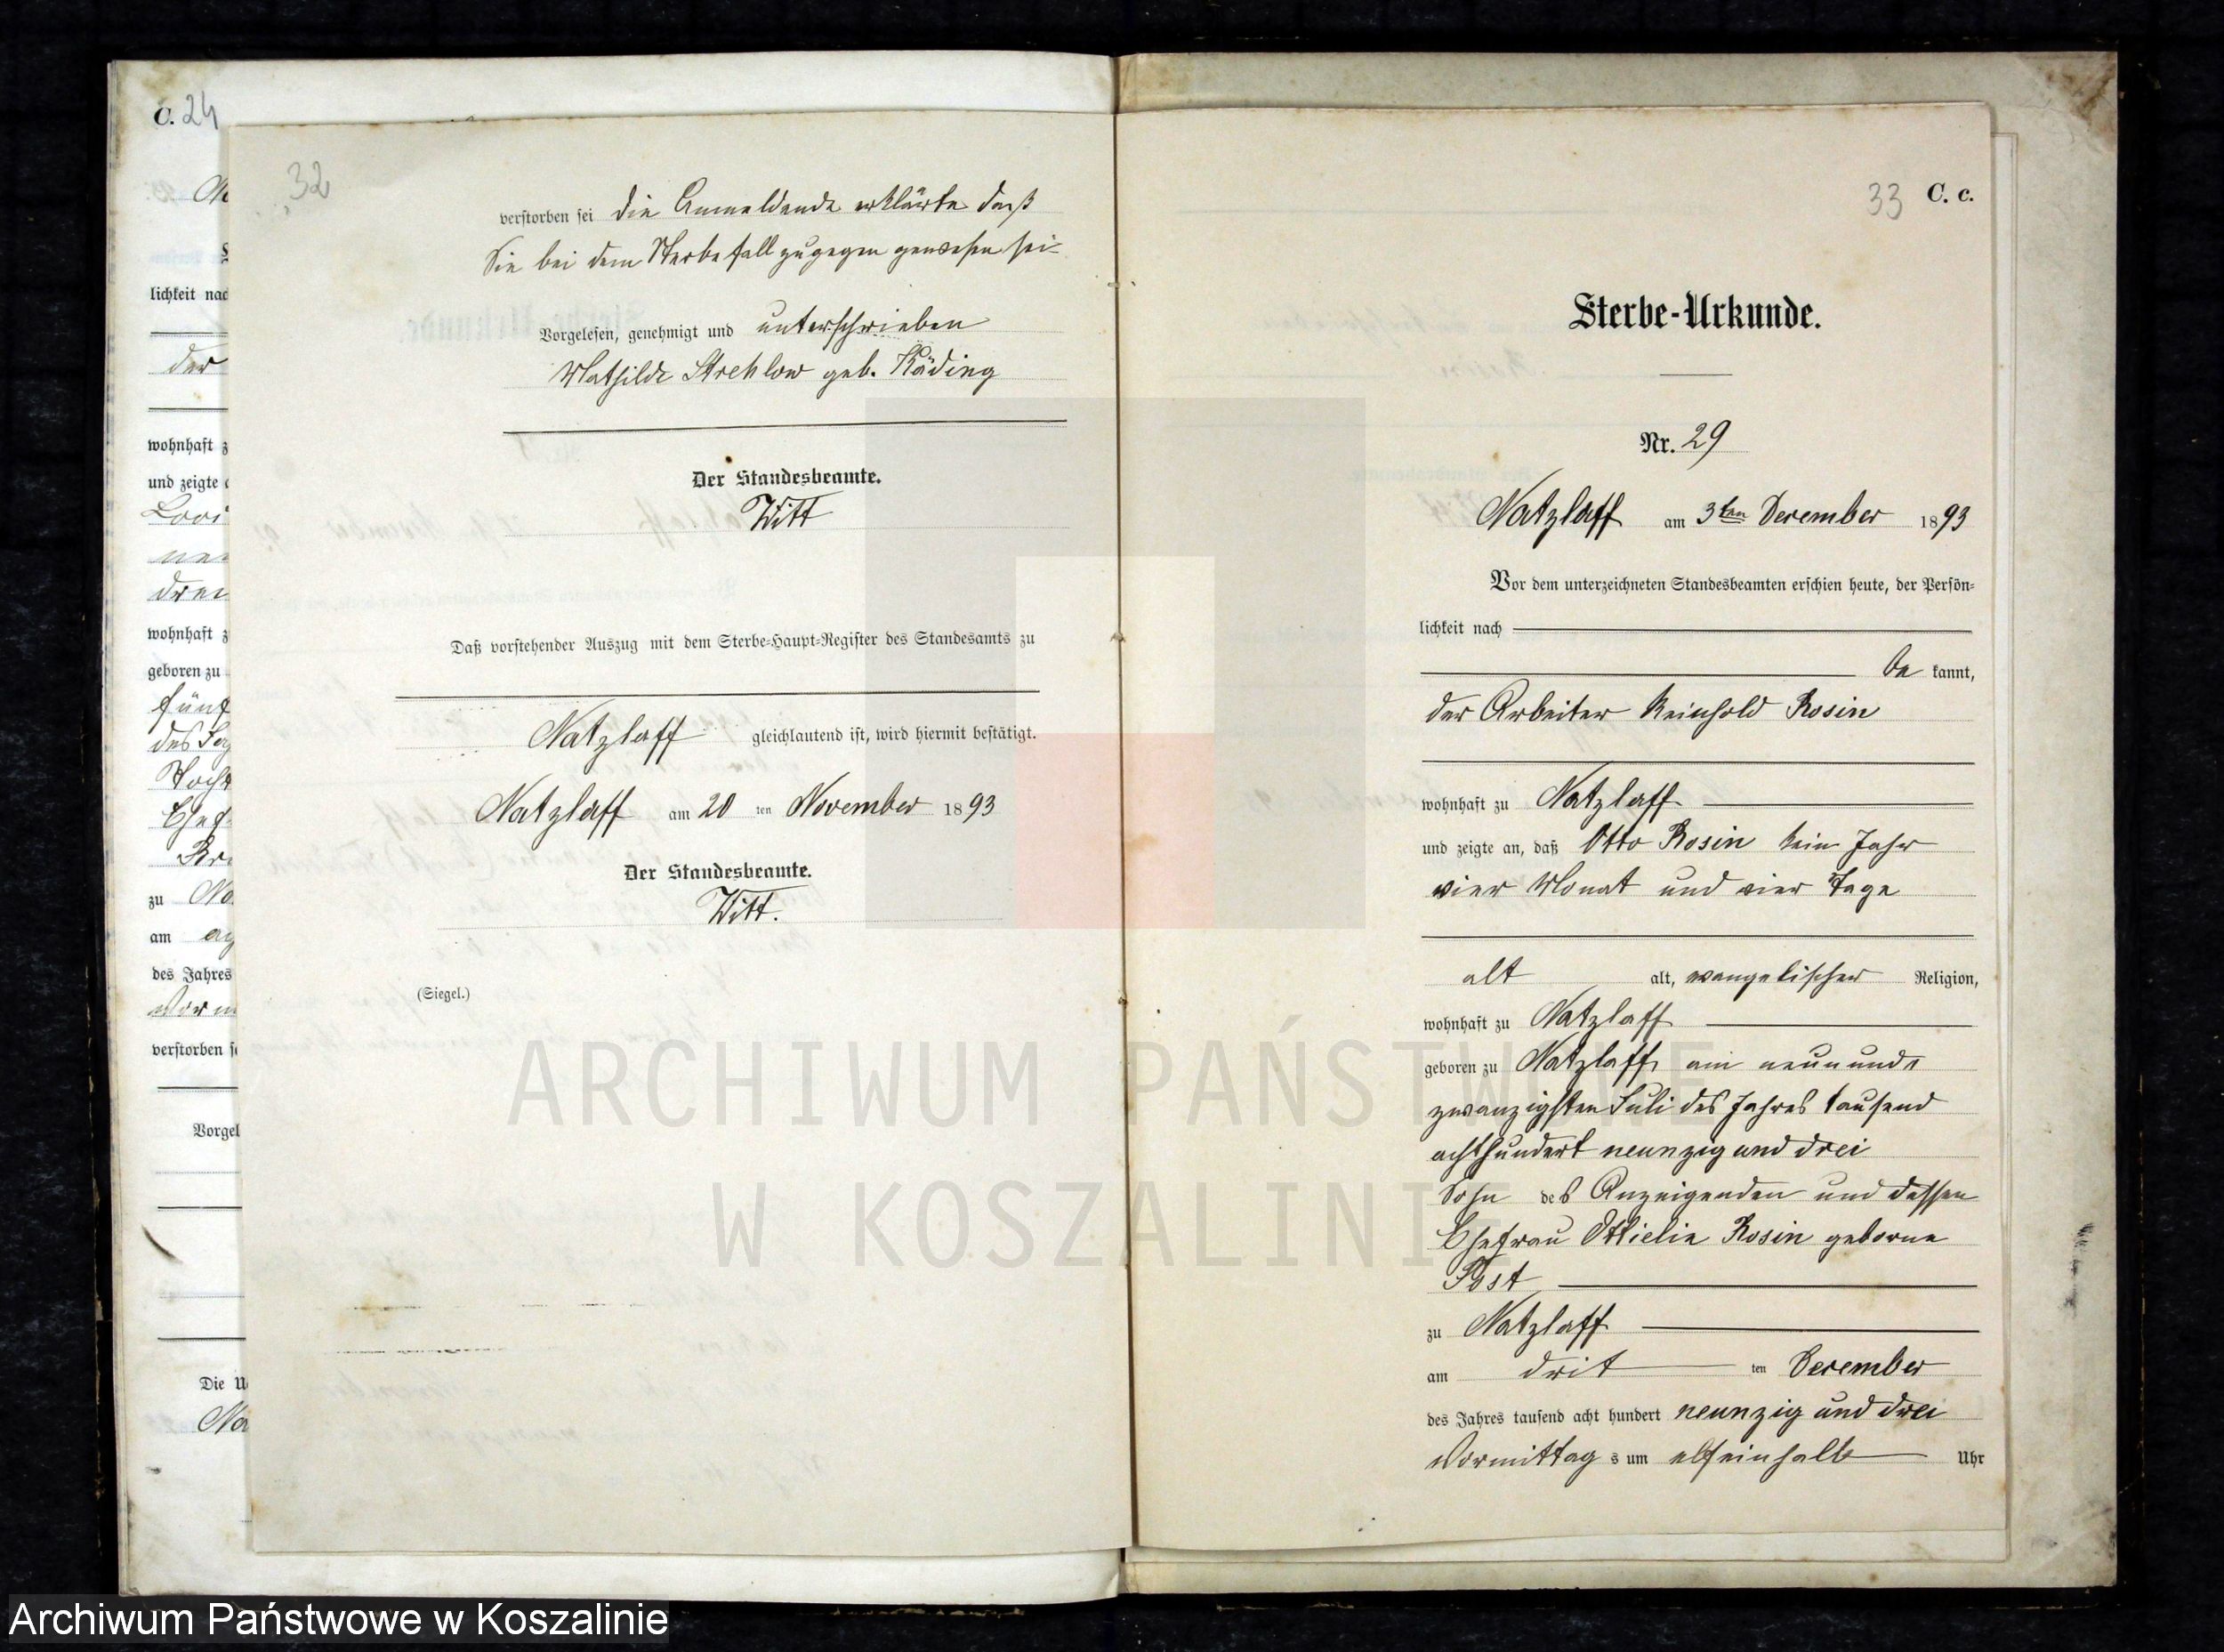 C. 24
lichkeit nac
der
wohnhaft z
und zeigte
drei
wohnhaft z
geboren zu
fünf
des
zu No
am
des Jahres
Vorm
verstorben s
Vorgel
Die U
Na
32
verstorben sei die Anmeldende erklärte daß
Sie bei dem Sterbefall zugegen gewesen sei
Vorgelesen, genehmigt und unterschrieben
Mathilde Strehlow geb. Käding
Der Standesbeamte.
Witt
Daß vorstehender Auszug mit dem Sterbe-Haupt-Register des Standesamts zu
Natzlaff gleichlautend ist, wird hiermit bestätigt.
Natzlaff am 20 ten November 1893
Der Standesbeamte.
Witt.
(Siegel.)
33 C. c.
Sterbe-Urkunde.
Nr. 29
Natzlaff am 3ten December 1893
Vor dem unterzeichneten Standesbeamten erschien heute, der Persön-
lichkeit nach
be kannt,
der Arbeiter Reinhold Rosin
wohnhaft zu Natzlaff
und zeigte an, daß Otto Rosin kein Jahr
vier Monat und vier Tage
alt alt, evangelischer Religion,
wohnhaft zu Natzlaff
geboren zu Natzlaff, am neunund
zwanzigsten Juli des Jahres tausend
achthundert neunzig und drei
Sohn des Anzeigenden und dessen
Ehefrau Ottielie Rosin geborne
Post
zu Natzlaff
am drit ten December
des Jahres tausend acht hundert neunzig und drei
Vormittag s um elfeinhalb Uhr
ARCHIWUM PAŃSTWOWE
W KOSZALINIE
Archiwum Państwowe w Koszalinie